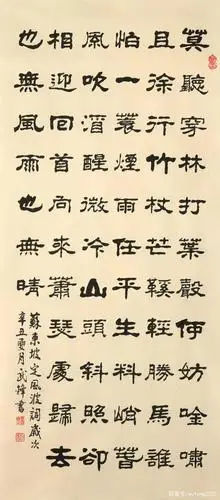 莫聽穿林打葉聲何妨吟嘯
且徐行竹杖芒鞵輕勝馬誰
怕一蓑煙雨任平生料峭春
風吹酒醒微冷山頭斜照卻
相迎回首向來蕭瑟處歸去
也無風雨也無晴
蘇東坡定風波詞歲次
辛丑夏月武鋒書